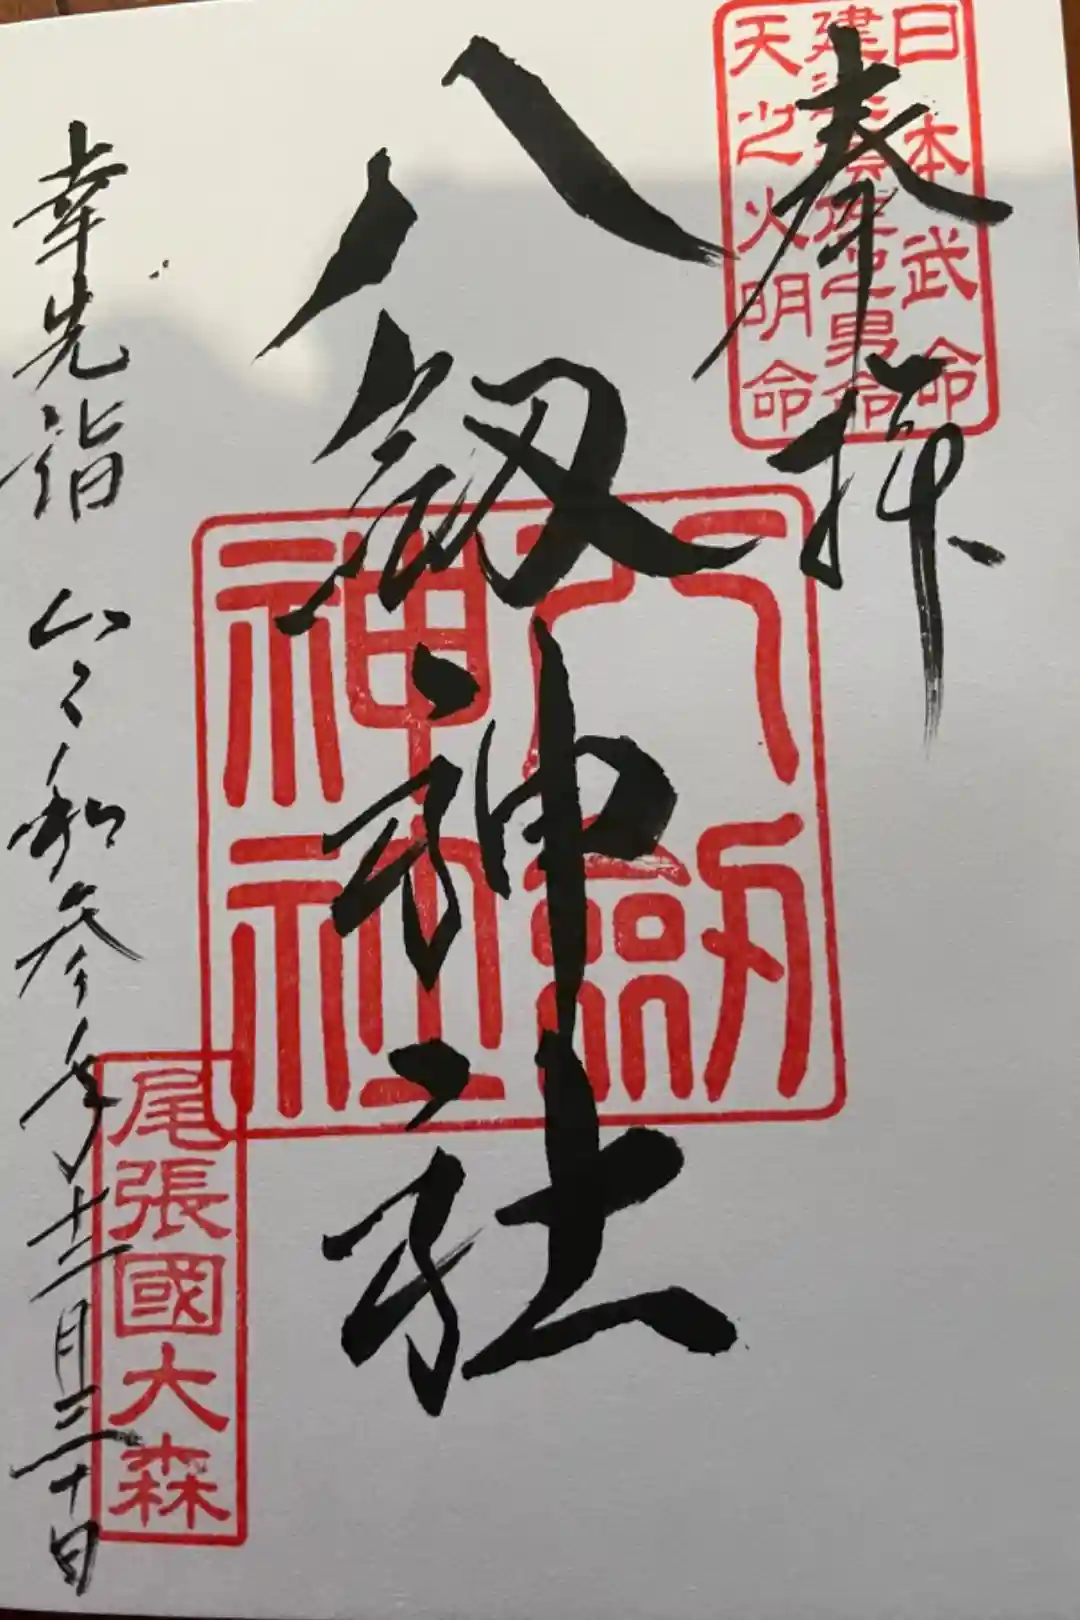 奉拝
日本武命
建速須佐之男命
天之火明命
八剱神社
八劔神社
幸先詣 令和参年十二月三十日
尾張國大森